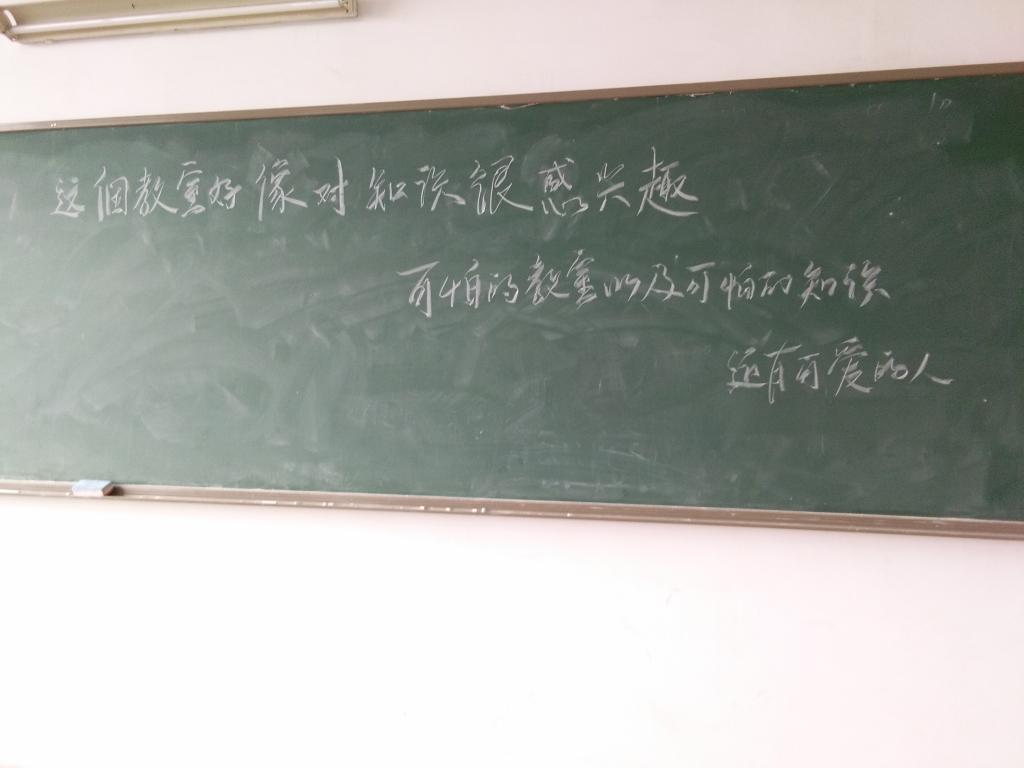 这個教室好像对知识很感兴趣
可怕的教室以及可怕的知识
还有可爱的人